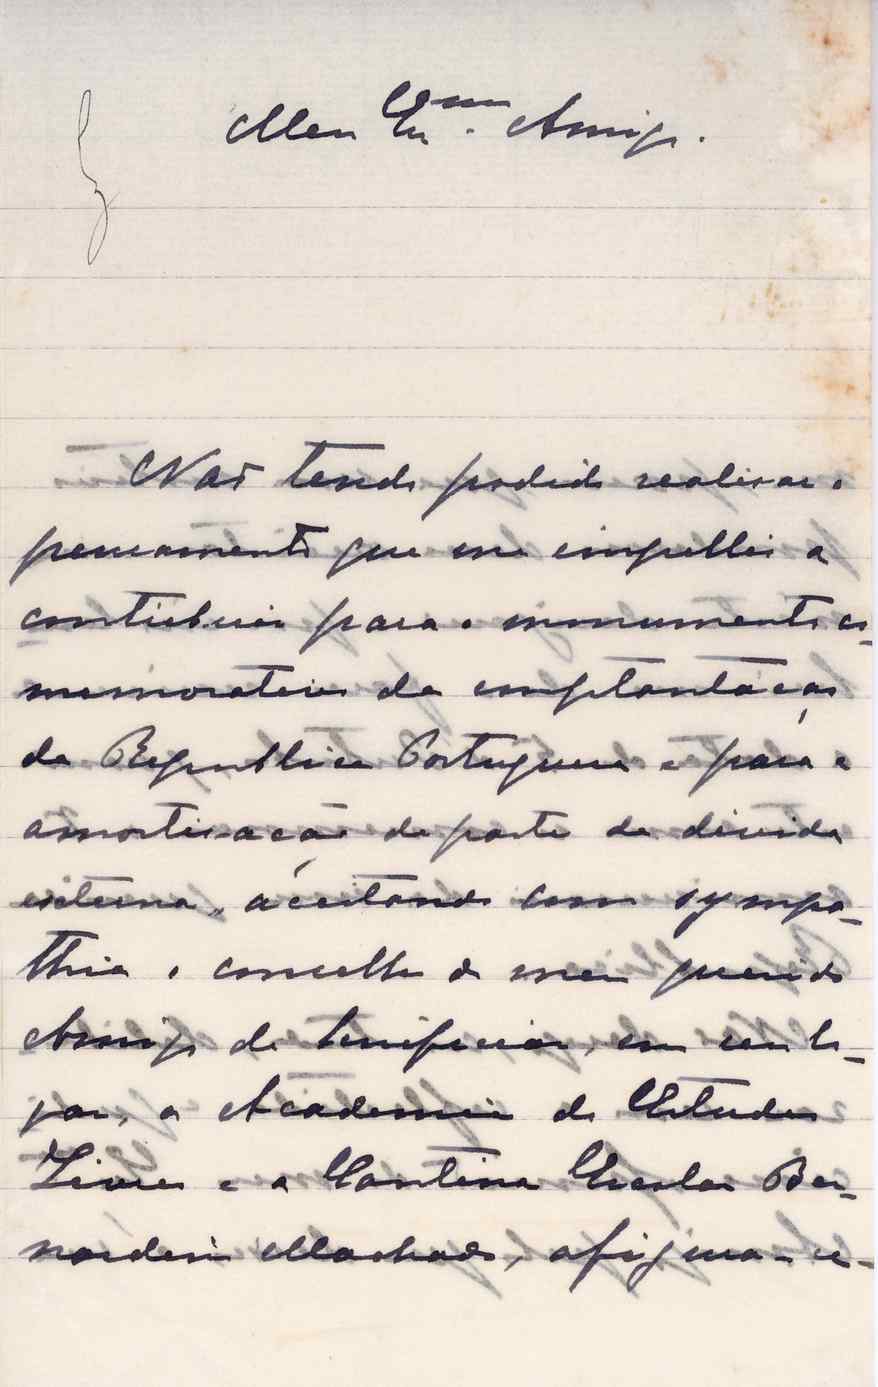 Meu Exmo. Amigo.
Não tendo podido realisar o
pensamento que me impelliu a
contribuir para o monumento co-
memorativo da implantação
da Republica Portugueza e para a
amortisação de parte da divida
externa, acceitando com sympa-
thia o conselho do meu querido
Amigo de beneficiar, em seu lo-
gar, a Academia de Estudos
Livres e a Cantina Escolar Ber-
nardino Machado, afigura-se-